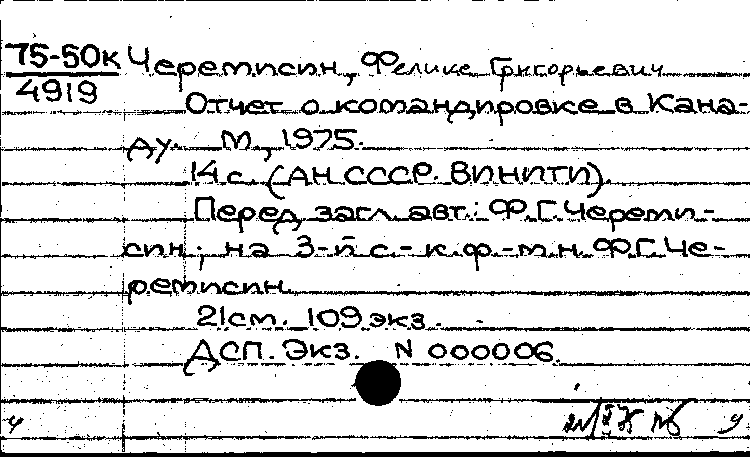 75-50к Черемисин, Феликс Григорьевич
4919
Отчет о командировке в Кана-
ду. М., 1975.
14 с. (АН СССР. ВИНИТИ).
Перед загл. авт.: Ф.Г. Череми-
син; на 3-й с. - к.ф.-м.н. Ф.Г. Че-
ремисин.
21 см. 109 экз.
ДСП. Экз. N 000006.